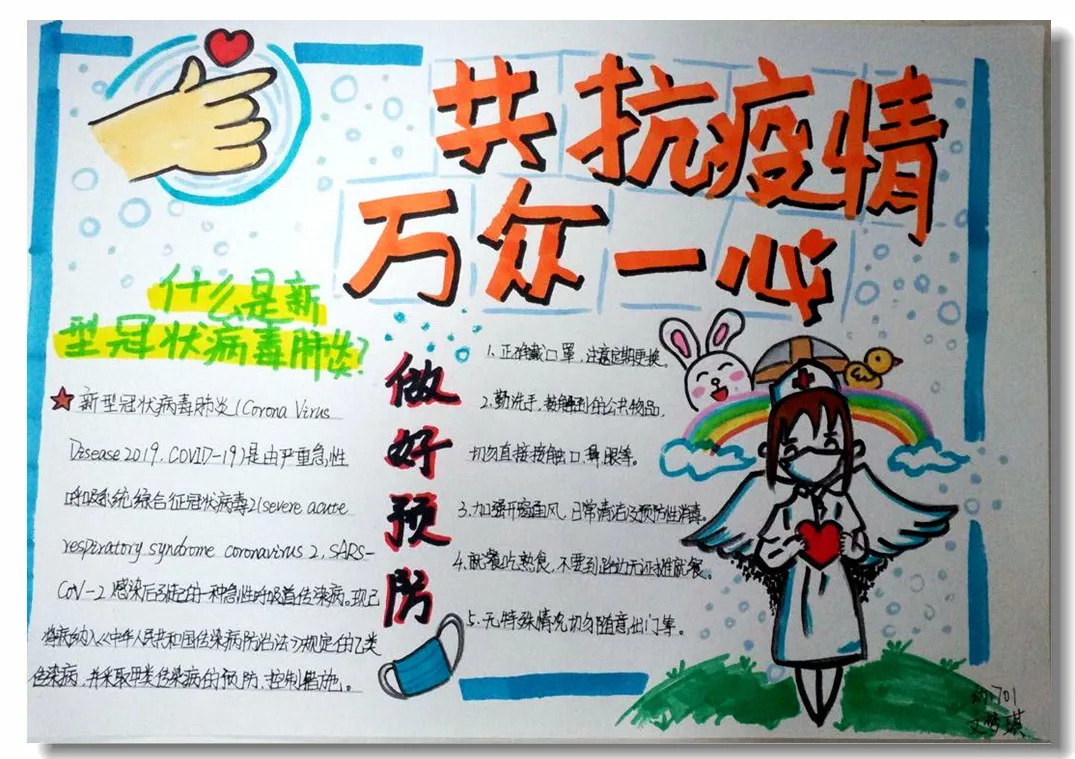 共抗疫情
万众一心
什么是新
型冠状病毒肺炎?
新型冠状病毒肺炎(Corona Virus
Disease 2019, COVID-19)是由严重急性
呼吸系统综合征冠状病毒2(severe acute
respiratory syndrome coronavirus 2, SARS-
CoV-2 感染后引起的一种急性呼吸道传染病。现已
将病纳入《中华人民共和国传染病防治法》规定的乙类
传染病,并采取甲类传染病的预防、控制措施。
做好预防
1、正确戴口罩,注意定期更换。
2.勤洗手,接触到的公共物品,
切勿直接接触口、鼻眼等。
3、加强开窗通风,日常清洁及预防性消毒。
4、就餐吃熟食,不要到路边无证摊就餐。
5、无特殊情况切勿随意出门等。
1701